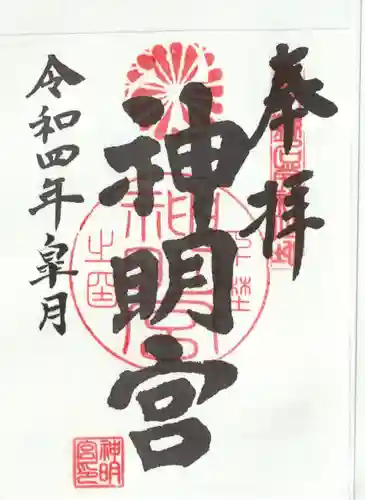 奉拝
神明宮
令和四年皐月
神明
宮印